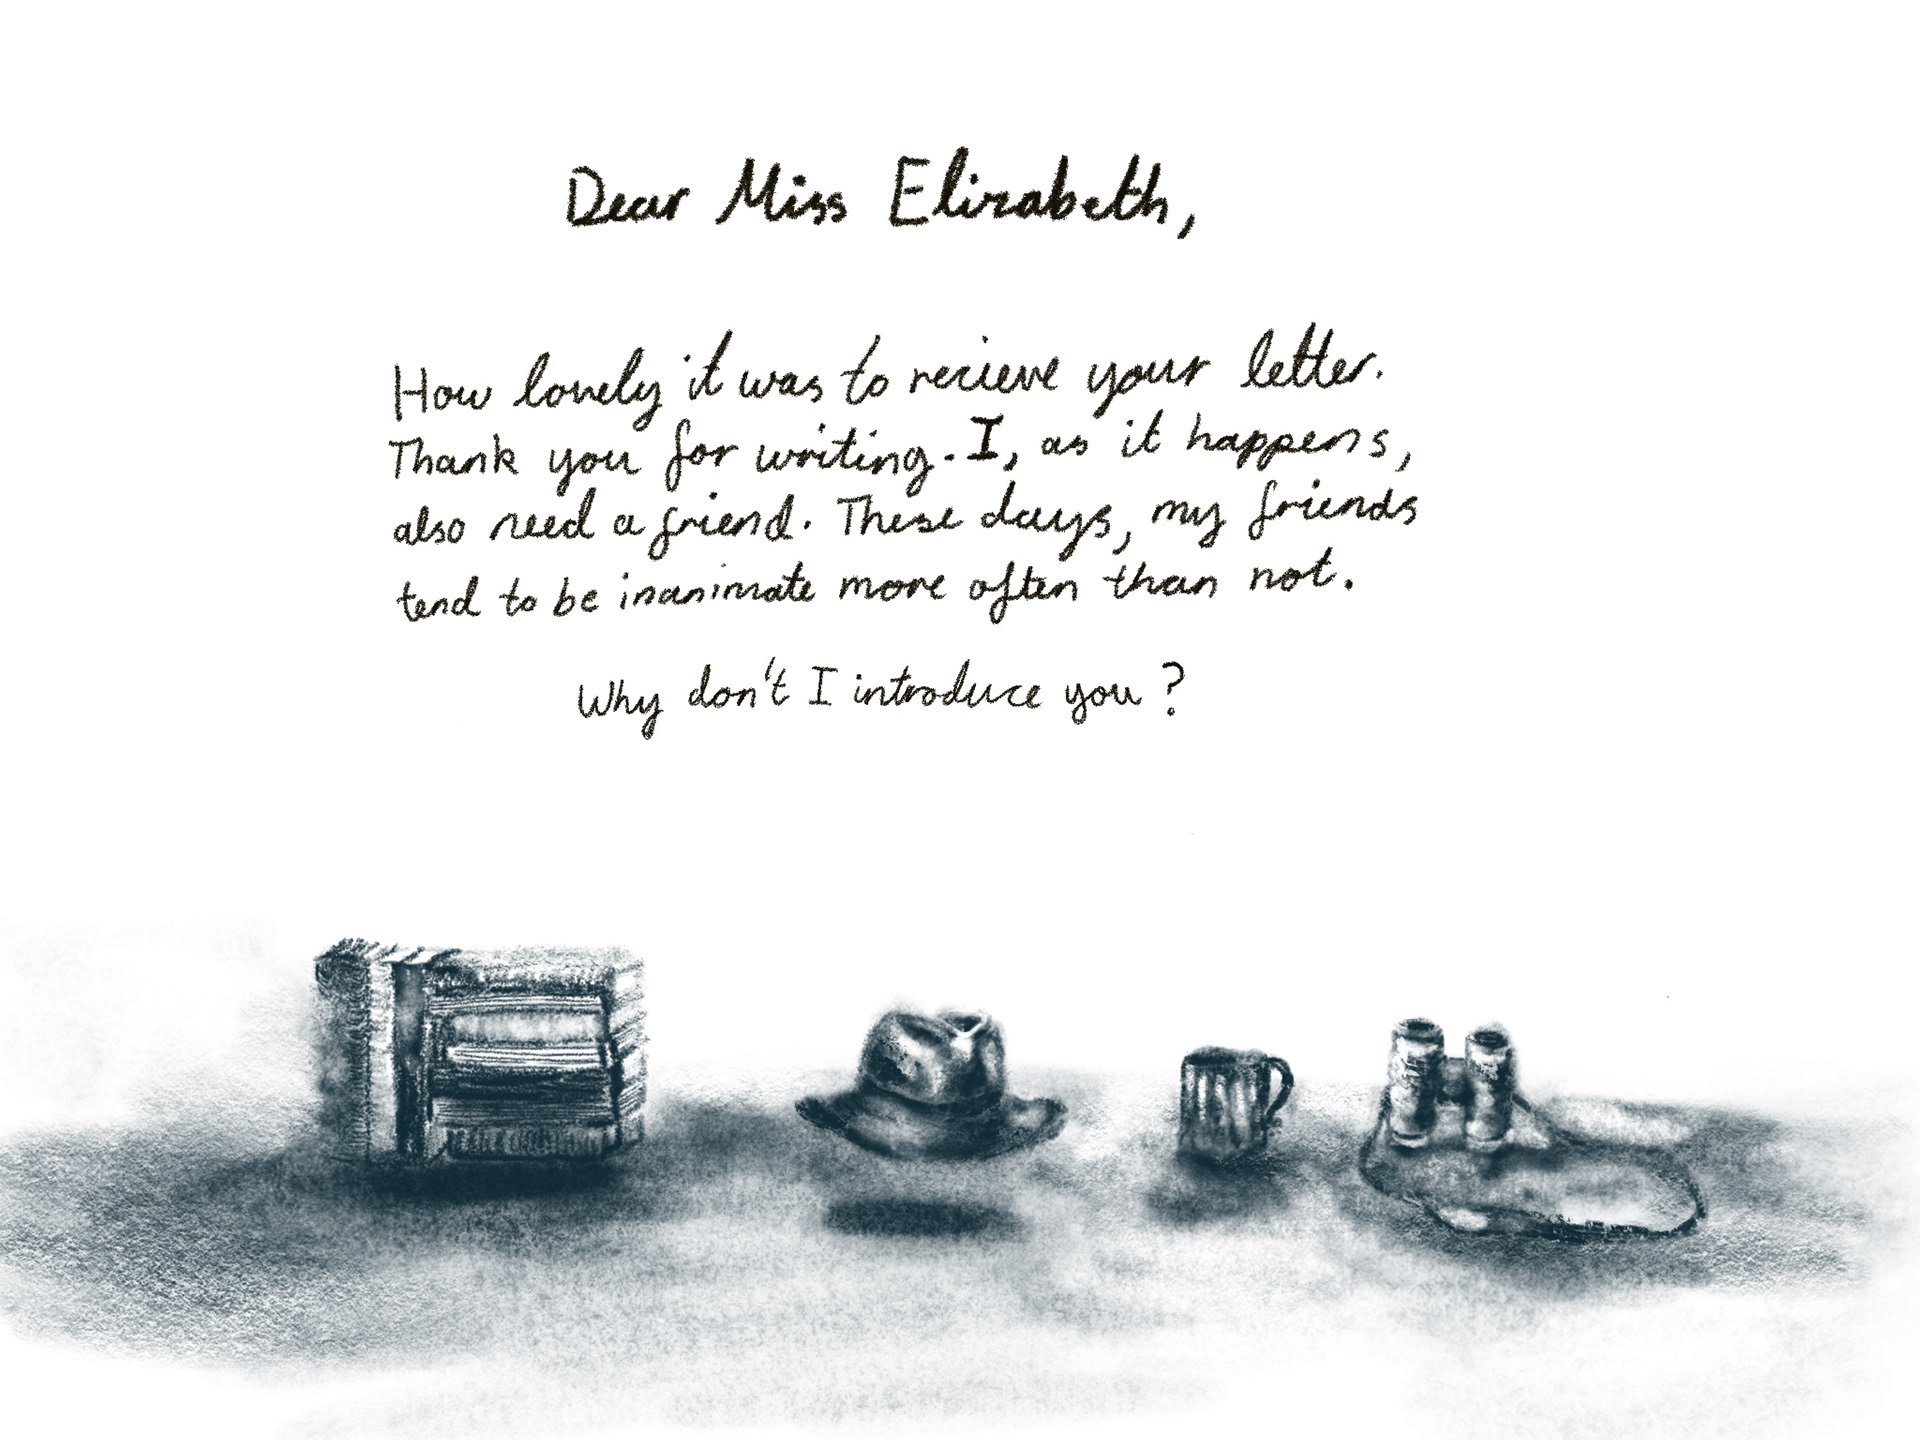 Dear Miss Elizabeth,
How lovely it was to recieve your letter.
Thank you for writing. I, as it happens,
also need a friend. These days, my friends
tend to be inanimate more often than not.
Why don't I introduce you?